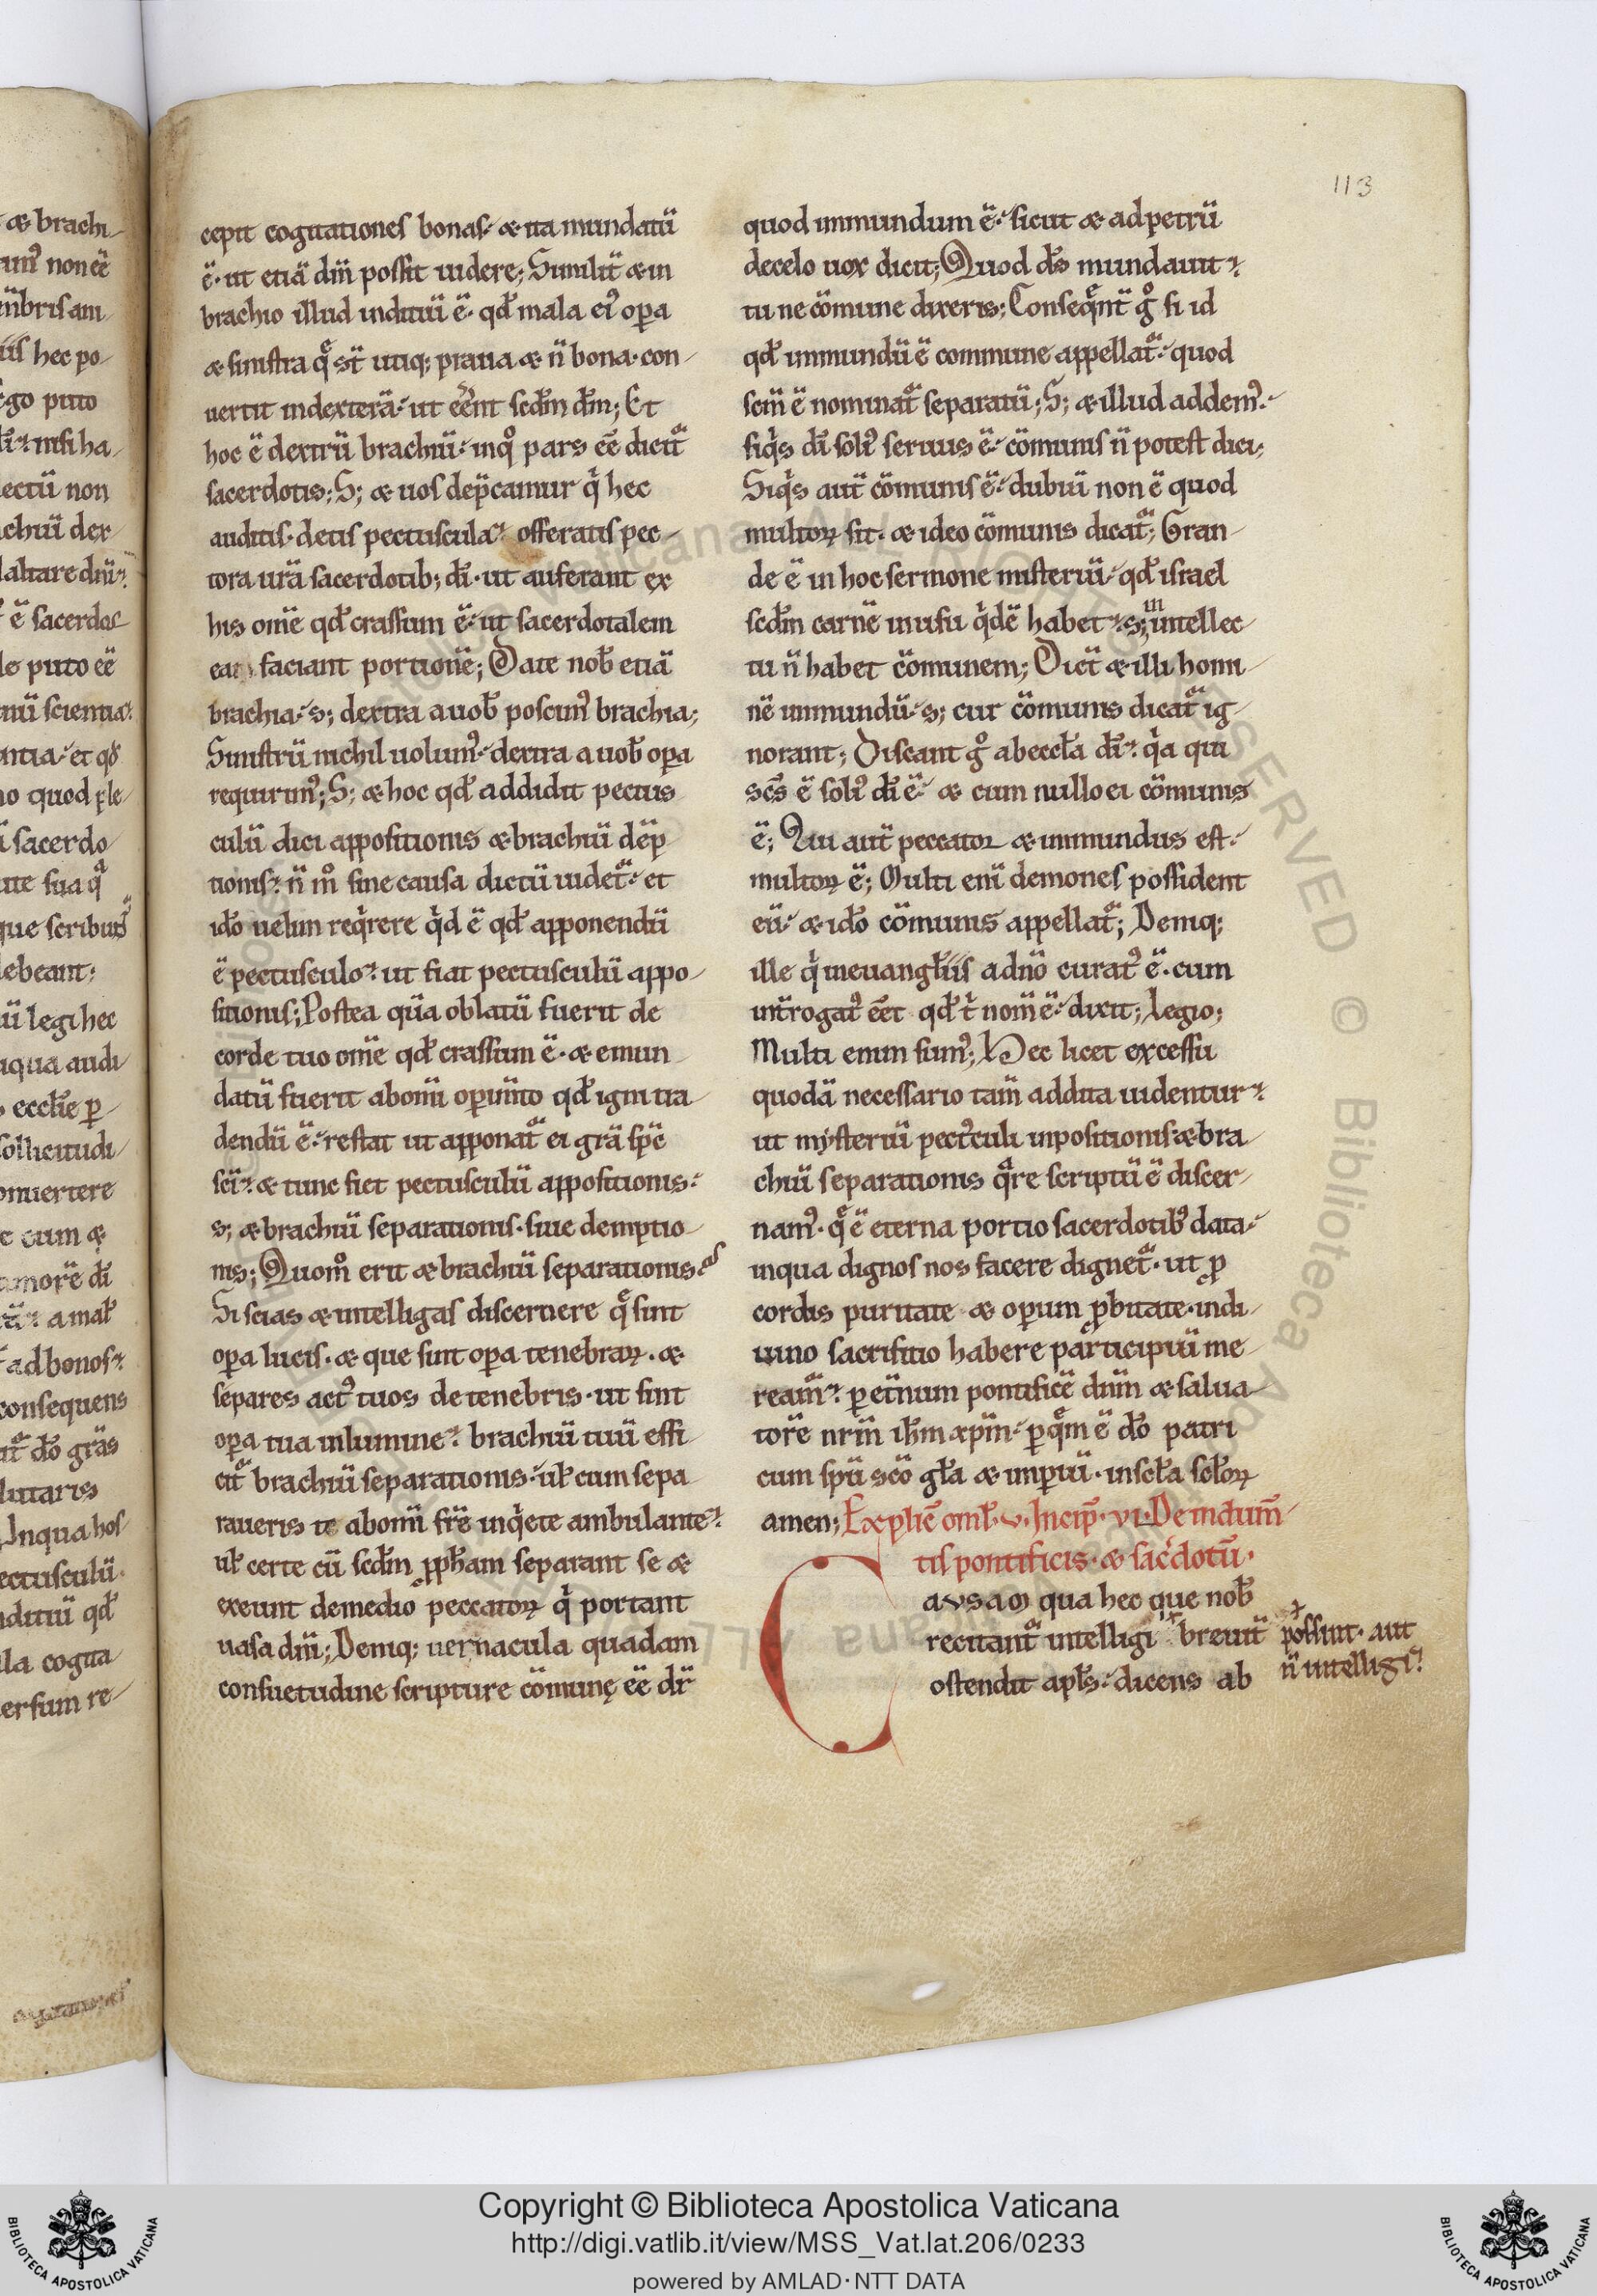 113
cepit cogitationes bonas· & ita mundatū
ē· ut etiā dm̄ possit uidere; Similit̄ & in
brachio illud inditiū ē· qđ mala ei᾽ oꝑa
& sinistra q̄ st̄ utiq; praua & n̄ bona· con-
uertit indexterā· ut eēnt scđm dm̄; Et
hoc ē dextrū brachiū· inq° pars eē dicit̄
sacerdotis; S; & uos dep̄camur q̇ hec
auditis· detis pectuscula· offeratis pec-
tora urā sacerdotib; dī· ut auferant ex
his om̄e qđ crassum ē· ut sacerdotalem
faciant portionē; Date nob̄ etiā
brachia· s; dextra a uob̄ poscim᾽ brachia;
Sinistrū nichil uolum᾽· dextra a uob̄ oꝑa
requirim᾽; S; & hoc qđ addidit pectus
culū dici appositionis & brachiū dēp
tionis· n̄ m° sine causa dictū uidet̄· et
idō uelim req̇rere q̇d ē qđ apponendū
ē pectusculo· ut fiat pectusculū appo-
sitionis; Postea quā oblatū fuerit de
corde tuo om̄e qđ crassum ē· & emun
datū fuerit abomī oꝑim̄to qđ igni tra-
dendū ē· restat ut apponat̄ ei grā sp̄c
scī· & tunc fiet pectusculū appositionis·
s; & brachiū separationis· siue demptio-
nis; Quom° erit & brachiū separationis·
Si scias & intelligas discernere q̄ sint
oꝑa lucis· & que sunt oꝑa tenebraꝝ· &
separes act᾽ tuos de tenebris· ut sint
oꝑa tua inlumine· brachiū tuū effi-
cit̄ brachiū separationis· uł cum sepa
raueris te abomī fr̄e inq̇ete ambulante·
uł certe cū scđm ꝓph̄am separant se &
exeunt demedio peccatoꝝ q̇ portant
uasa dm̄; Deniq; uernacula quadam
consuetudine scripture cōmunę eē dr̄
quod immundum ē· sicut & ad petrū
decelo uox dicit; Quod dś mundauit·
tu ne cōmune dixeris; Conseq̄nt̄ g° si id
qđ immundū ē commune appellat̄· quod
scm̄ ē nominat̄ separatū; S; & illud addem᾽·
siq̇s dī soli᾽ seruus ē· cōmunis n̄ potest dici;
Siq̇s aut̄ cōmunis ē· dubiū non ē quod
multoꝝ sit· & ideo cōmunis dicat̄; Gran-
de ē in hoc sermone misteriū· qđ israel
scđm carnē inusu q̇dē habet· s; in intellec-
tu n̄ habet cōmunem; Dict̄ & illi homi-
nē immundū· s; cur cōmunis dicat̄ ig-
norant; Discant g° abeccła dī· q̇a qui
scś ē soli᾽ dī ē· & cum nullo ei cōmunis
ē; Qui aut̄ peccator & immundus est·
multoꝝ ē; Multi enī demones possident
eū· & idō cōmunis appellat̄; Deniq;
ille q̇ ineuangłiis adnō curat᾽ ē· cum
int̄rogat᾽ eēt qđ t̄ nom̄ ē· dixit; Legio;
Multi enim sum᾽; Hec licet excessu
quodā necessario tam̄ addita uidentur·
ut mysteriū pect᾽culi inpositionis & bra-
chiū separationis q̄re scriptū ē discer-
nam᾽· q̄ ē eterna portio sacerdotib᾽ data·
inqua dignos nos facere dignet̄· ut ꝓ
cordis puritate & oꝑum ꝓbitate· indi-
uino sacrifitio habere participiū me-
ream̄· ꝑ et̄num pontificē dn̄m & salua-
torē nr̄m ih̄m xp̄m· ꝑquem ē dō patri
cum spū scō gła & imꝑiū· inscła scłoꝝ
amen; Explic̄ omł· v· Incip̄· vi· De indum̄-
tis pontificis· & sac̄dotū·
CAVSAM qua hec que nob̄
recitant̄ intelligi breuit̄ possunt· aut
ostendit apłs· dicens ab n̄ intelligi·
Copyright © Biblioteca Apostolica Vaticana
http://digi.vatlib.it/view/MSS_Vat.lat.206/0233
powered by AMLAD·NTT DATA